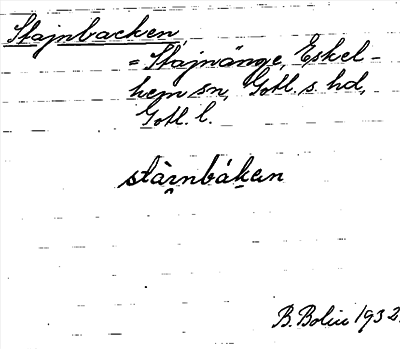 Stajnbacken,
= Stajnänge, Eskel-
hem sn, Gotl. s. hd,
Gotl. l.
stàrnbákęn
B. Bolin 1932.